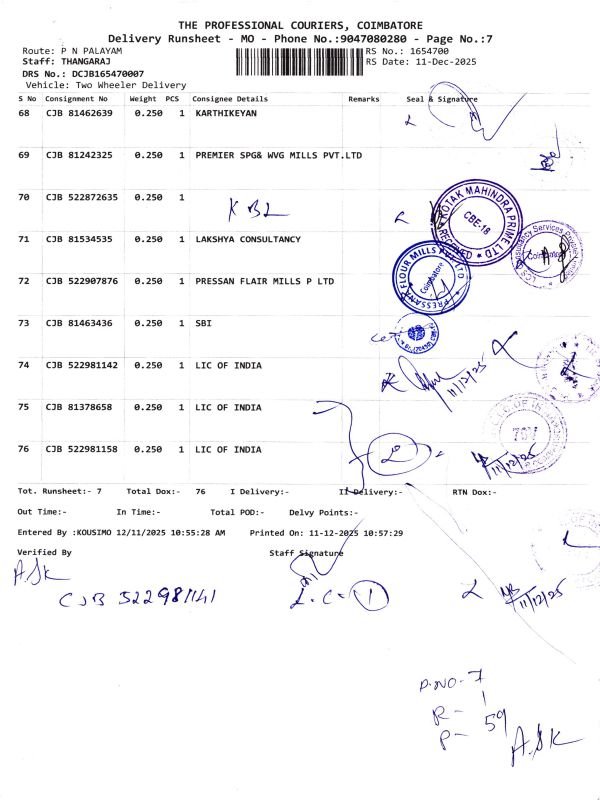 THE PROFESSIONAL COURIERS, COIMBATORE
Delivery Runsheet - MO - Phone No.:9047080280 - Page No.:7
Route: P N PALAYAM RS No.: 1654700
Staff: THANGARAJ RS Date: 11-Dec-2025
DRS No.: DCJB165470007
Vehicle: Two Wheeler Delivery
S No Consignment No Weight PCS Consignee Details Remarks Seal & Signature
68 CJB 81462639 0.250 1 KARTHIKEYAN
69 CJB 81242325 0.250 1 PREMIER SPG& WVG MILLS PVT.LTD
70 CJB 522872635 0.250 1
KBL
KOTAK MAHINDRA PRIME LTD
CBE-18
RECEIVED
71 CJB 81534535 0.250 1 LAKSHYA CONSULTANCY
Coimbatore
72 CJB 522907876 0.250 1 PRESSAN FLAIR MILLS P LTD
PRESSANA FLOUR MILLS PVT LTD
Coimbatore
73 CJB 81463436 0.250 1 SBI
74 CJB 522981142 0.250 1 LIC OF INDIA
11/12/25
75 CJB 81378658 0.250 1 LIC OF INDIA
76 CJB 522981158 0.250 1 LIC OF INDIA
11/12/25
Tot. Runsheet:- 7 Total Dox:- 76 I Delivery:- II Delivery:- RTN Dox:-
Out Time:- In Time:- Total POD:- Delvy Points:-
Entered By :KOUSIMO 12/11/2025 10:55:28 AM Printed On: 11-12-2025 10:57:29
Verified By Staff Signature
A.SK
CJB 522981141 11/12/25
P.NO-7
R- 1
P- 59
A.SK